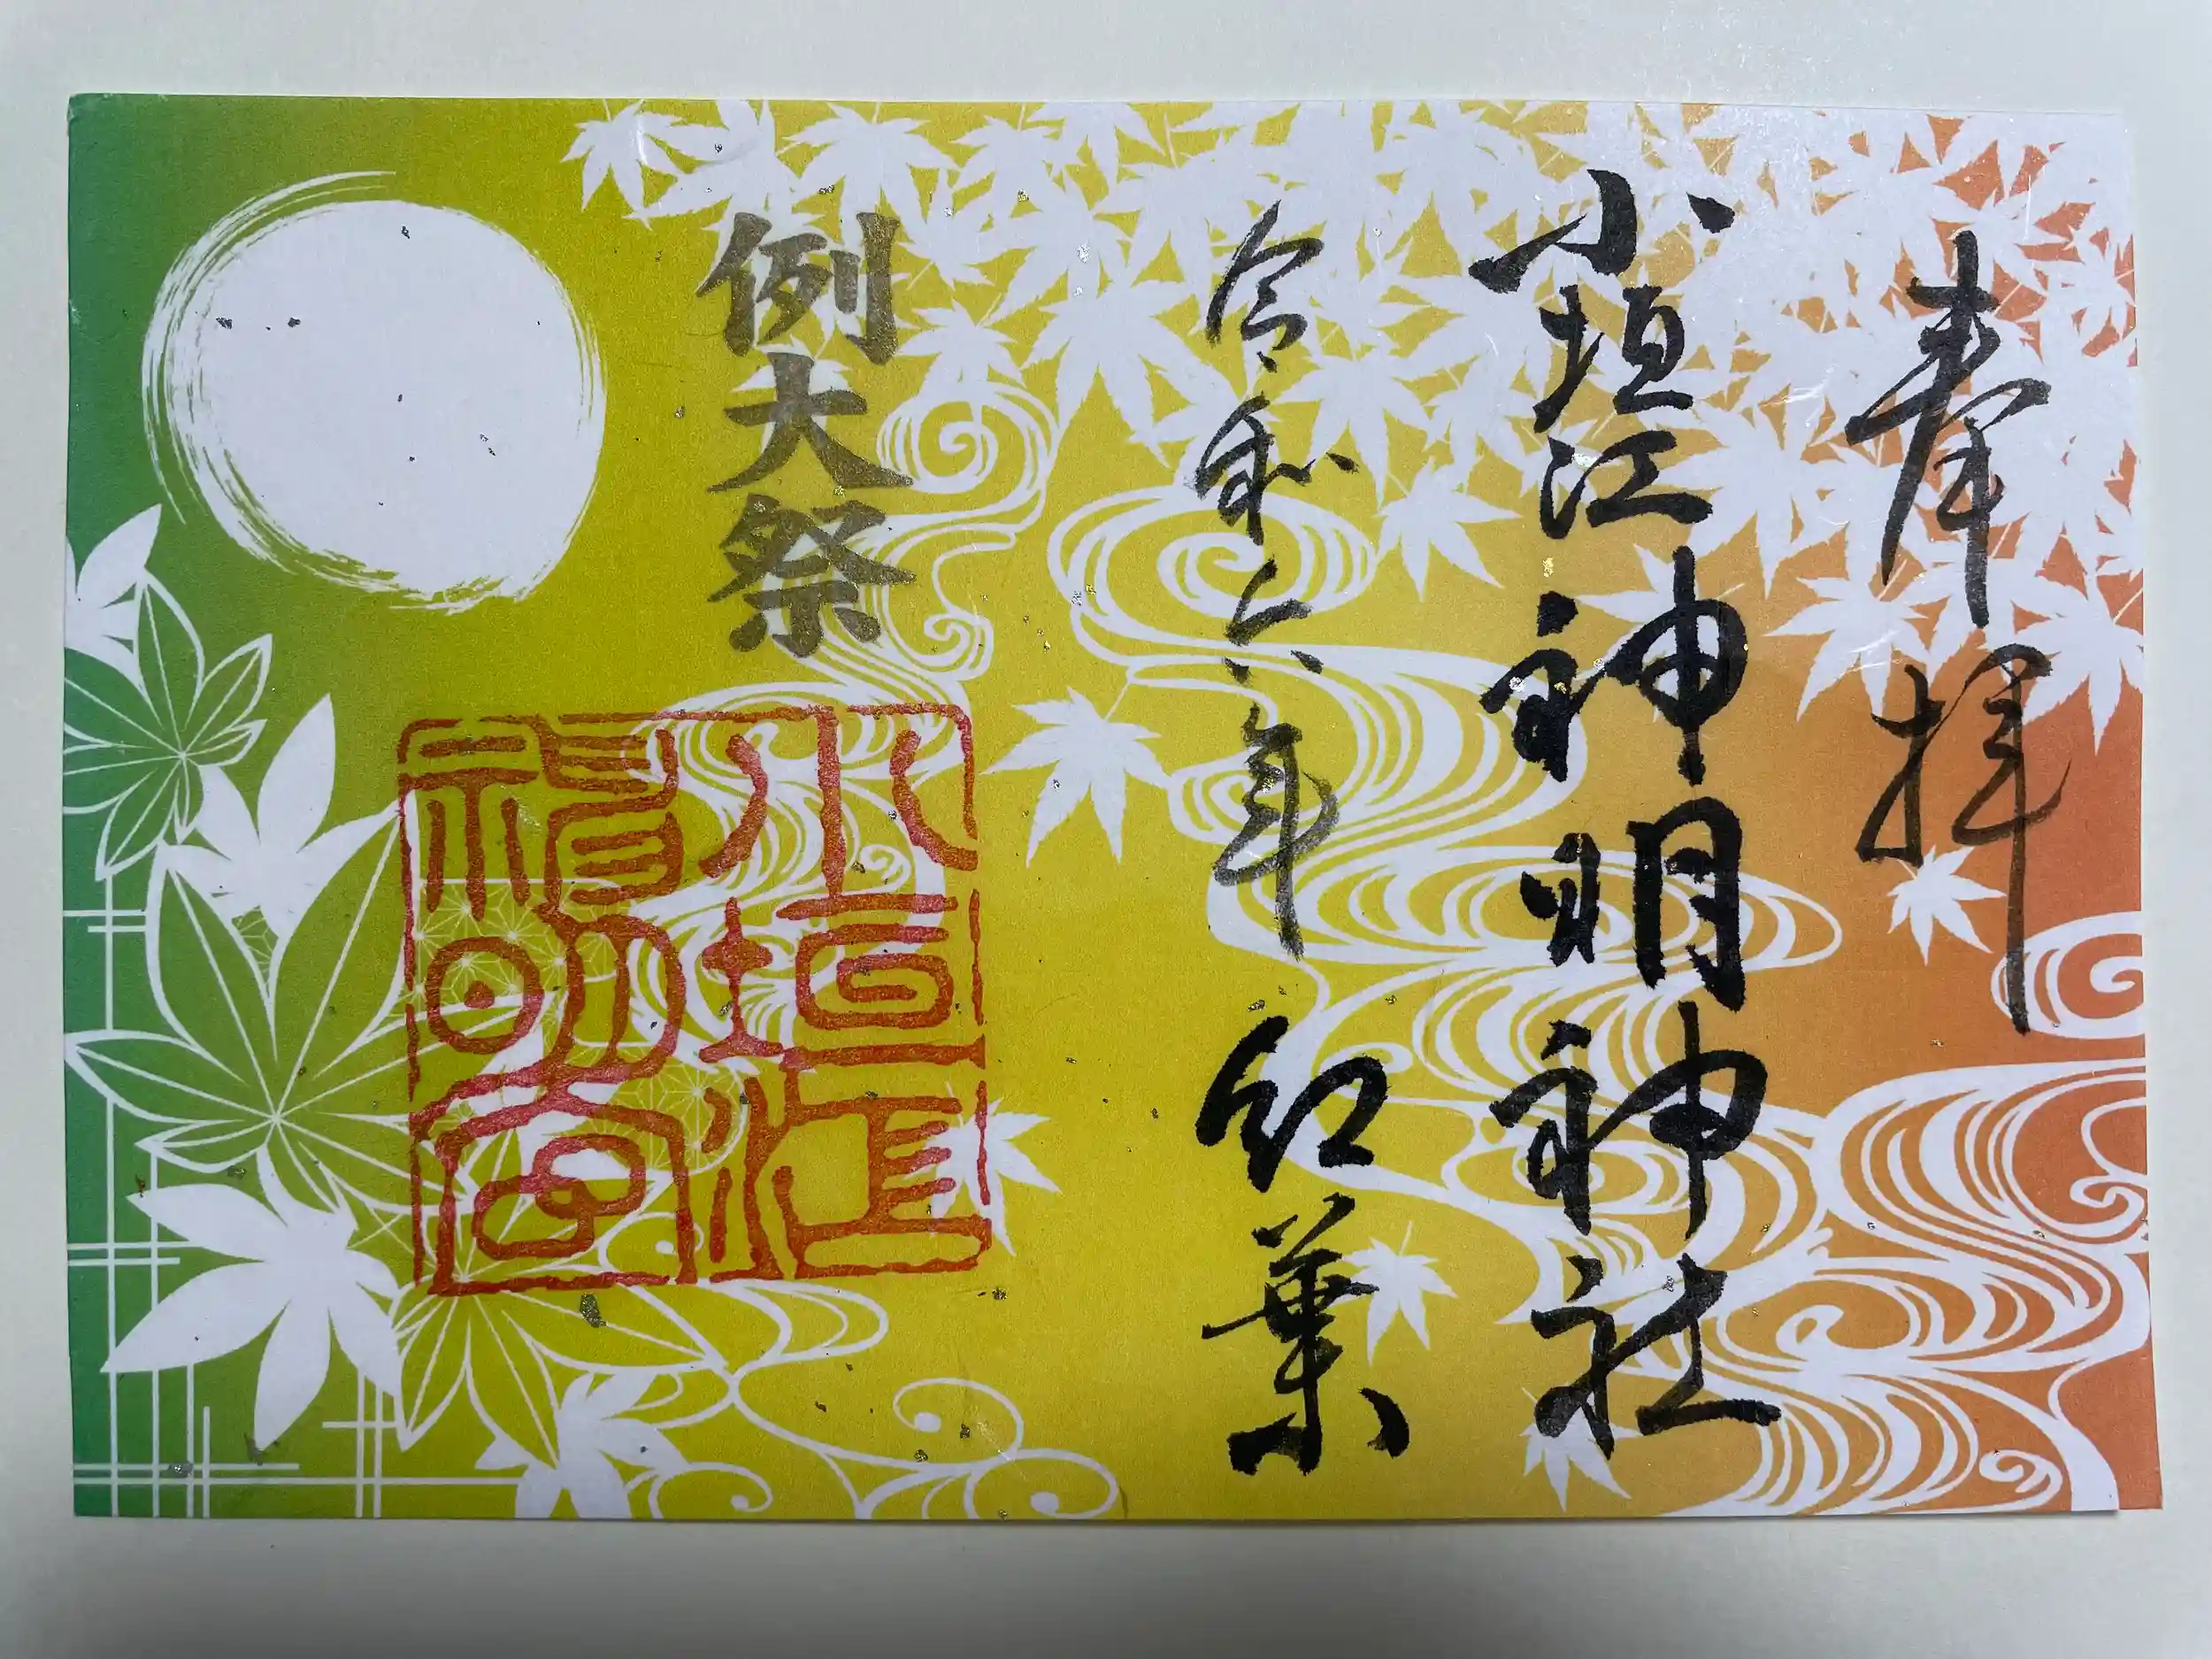 奉拝
小垣江神明神社
令和六年 紅葉
例大祭
小垣江
神明宮